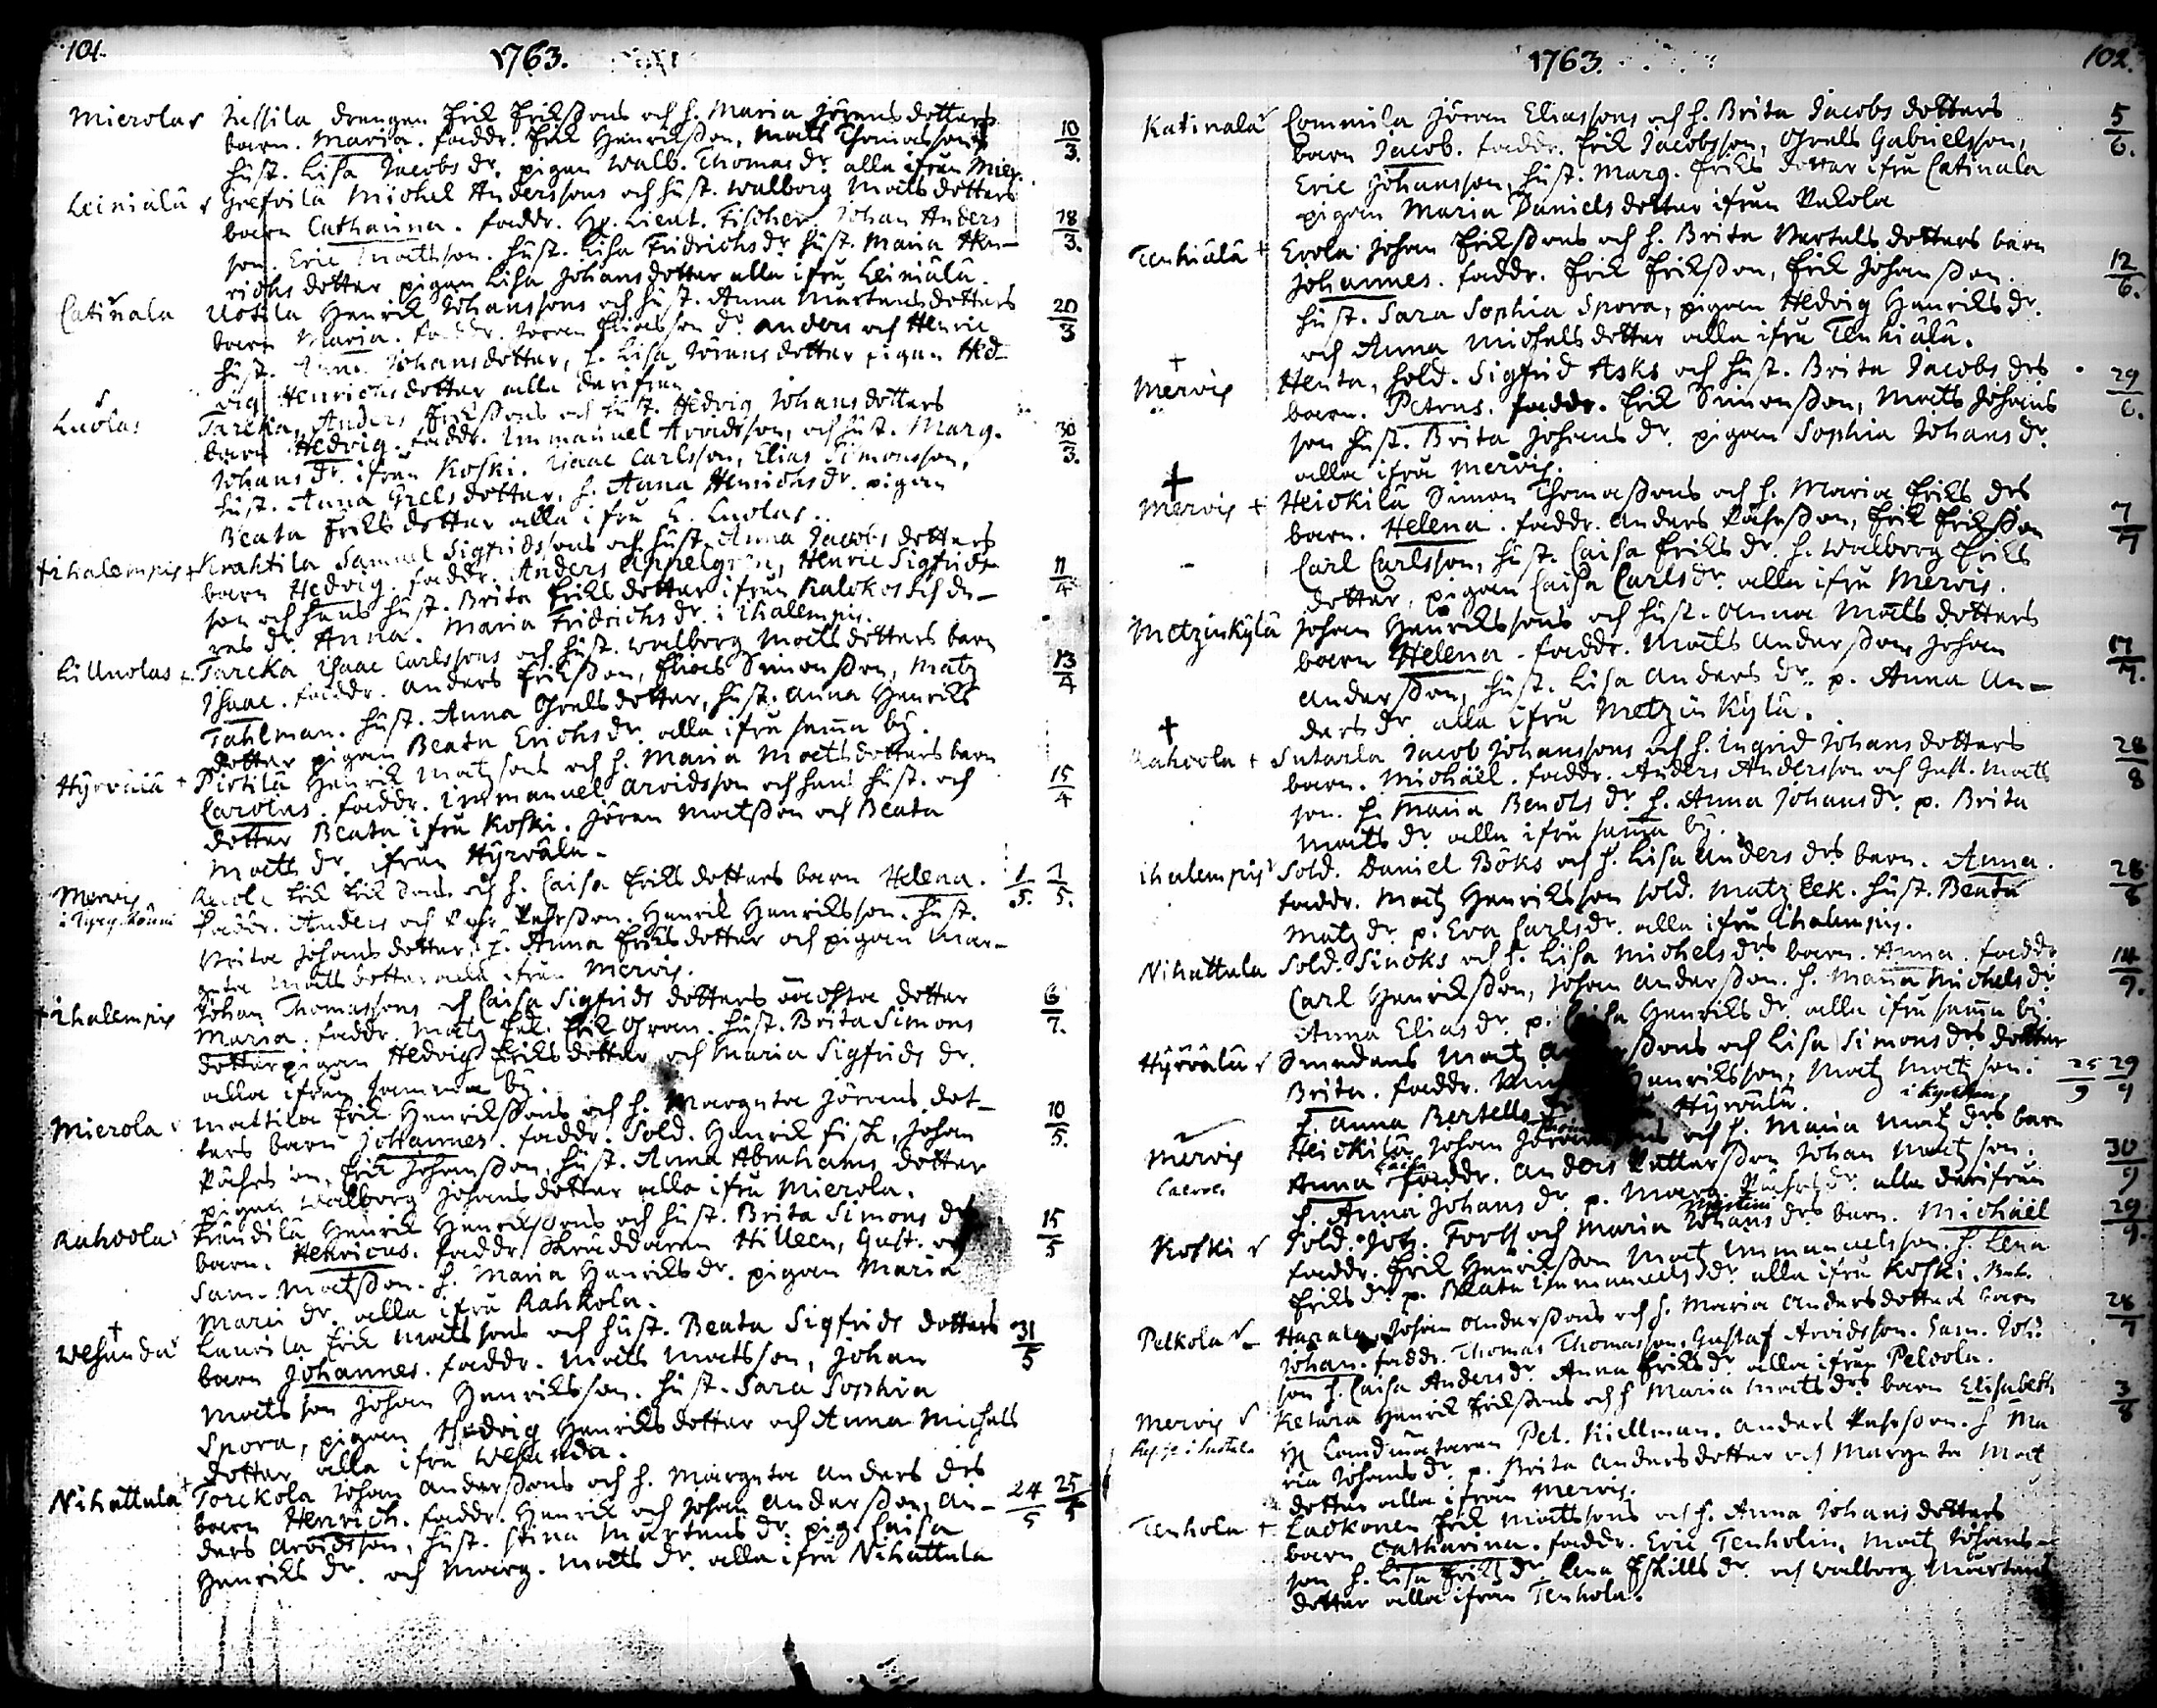 101.
1763.
Mierola Jussila drengen Erik Erikssons och h. Maria Jörens dotters
barn. Maria. faddr. Erik Henriksson, Mats Thomasson 10/3.
hust. Lisa Jacobs dr. pigan Walb. Thomas dr. alla ifrån Mier.
Leiniälä Grefvilä Michel Anderssons och hust. Walborg Mats dotters
barn Catharina. faddr. Hr. Lieut. Fischer. Johan Anders 18/3.
son. Eric Mathsson. hust. Lisa Fridrichs dr hust. Maria Hen-
richs dotter pigan Lisa Johans dotter alla ifrå Leiniälä.
Catinala Uotila Henrik Johanssons och hust. Anna Mårtens dotters
barn Maria. faddr. Jöran Eliasson dr. Anders och Henric 20/3
hust. Anna Johansdotter, h. Lisa Jörens dotter pigan Hed-
vig Henrichs dotter alla derifrån
Luolas Tarcka, Anders Erikssons och hust. Hedvig Johans dotters
barn Hedvig. faddr. Immanuel Arvidsson, och hust. Marg. 30/3.
Johans dr. ifrån Koski. Isaac Carlsson, Elias Simonsson,
hust. Anna Grels dotter, h. Anna Henrichs dr. pigan
Beata Eriks dotter alla ifrå L. Luolas.
+ Ihalempis + Krahtila Samuel Sigfridssons och hust. Anna Jacobs dotters
barn Hedvig. faddr. Anders Appelgren, Henric Sigfrids- 11/4
son och hans hust. Brita Eriks dotter ifrån Kalokos
res dr. Anna. Maria Fridrichs dr. i Ihalempis.
Lilluolas Tarcka Isaac Carlssons och hust. Walborg Mats dotters barn
Isaac. faddr. Anders Eriksson, Elias Simonsson, Matz 13/4
Tahlman. hust. Anna Grels dotter, hust. Anna Henriks
dotter pigan Beata Erichs dr. alla ifrå samma by.
Hyrvälä + Pirtilä Henrik Matzsons och h. Maria Mats dotters barn
Carolus. faddr. Immanuel Arvidsson och hans hust. och 15/4
dotter Beata ifrå Koski. Jören Matsson och Beata
Mats dr. ifrån Hyrvälä.
Mervis Erik Eriksons och h. Caisa Eriks dotters barn Helena. 1/5. 7/5.
faddr. Anders och Påhlsson. Henrik Henriksson. hust.
Brita Johans dotter, h. Anna Eriks dotter och pigan Mar-
greta Mats dotter alla ifrån Mervis.
+ Ihalempis Johan Thomassons och Caisa Sigfrids dotters oächta dotter
Maria. faddr. Matz Eek. Erik Gran. hust. Brita Simons 6/7.
dotter pigan Hedvig Eriks dotter och Maria Sigfrids dr.
alla ifrån samma by.
Mierola Mattila Erik Henrikssons och h. Margreta Jörens dot-
ters barn Johannes. faddr. Sold. Henrik Fisk, Johan 10/5.
Påhlsson, Erik Johansson, hust. Anna Abrahams dotter
pigan Walborg Johans dotter alla ifrå Mierola.
Rahkola Frändilä Henrik Henrikssons och hust. Brita Simons drs
barn. Henricus. faddr. Skräddaren Hilleen, Gust. och 15/5
Sam. Matsson. h. Maria Henriks dr. pigan Maria
Mats dr. alla ifrå Rahkola.
Wesunda Laurila Erik Matssons och hust. Beata Sigfrids dotters 31/5
barn Johannes. faddr. Mats Matsson, Johan
Matsson Johan Henriksson. hust. Sara Sophia
Spora, pigan Hedvig Henriks dotter och Anna Michels
dotter alla ifrå Wesunda.
Nihattula + Torckola Johan Anderssons och h. Margreta Anders drs
barn Henrich. faddr. Henrik och Johan Andersson, An- 24/5 25/5
ders Arvidsson, hust. Stina Mårtens dr. pig. Caisa
Henriks dr. och Marg. Mats dr. alla ifrå Nihattula
1763.
102.
Katinala Commila Jöran Eliassons och h. Brita Jacobs dotters 5/6.
barn Jacob. faddr. Erik Jacobsson, Grels Gabrielsson,
Eric Johansson, hust. Marg. Eriks dotter ifrå Catinala
pigan Maria Daniels dotter ifrån Pekola
Tenhiälä + Erola Johan Erikssons och h. Brita Bertels dotters barn
Johannes. faddr. Erik Eriksson, Erik Johansson. 12/6.
hust. Sara Sophia Spora, pigan Hedvig Henriks dr.
och Anna Michels dotter alla ifrå Tenhiälä.
+ Mervis Henta, sold. Sigfrid Asks och hust. Brita Jacobs drs
barn. Petrus. faddr. Erik Simonsson, Mats Johans 29/6.
son hust. Brita Johans dr. pigan Sophia Johans dr.
alla ifrå Mervis.
+ Mervis + Heickilä Simon Thomassons och h. Maria Eriks drs
barn. Helena. faddr. Anders Påhlsson, Erik Eriksson 7/7
Carl Carlsson, hust. Caisa Eriks dr. h. Walborg Eriks
dotter, pigan Caisa Carls dr. alla ifrå Mervis.
Metzinkylä Johan Henrikssons och hust. Anna Mats dotters
barn Helena. faddr. Mats Andersson Johan 17/7.
Andersson, hust. Lisa Anders dr. p. Anna An-
ders dr. alla ifrå Metzinkylä.
+ Rahcola + Sutarla Jacob Johanssons och h. Ingrid Johans dotters
barn. Michäel. faddr. Anders Andersson och Gust. Mats 28/8
son. h. Maria Bencts dr. h. Anna Johans dr. p. Brita
Mats dr. alla ifrå samma by.
Ihalempis Sold. Daniel Böks och h. Lisa Anders drs barn. Anna.
faddr. Matz Henriksson sold. Matz Eek. hust. Beata 28/8
Matz dr. p. Eva Carls dr. alla ifrå Ihalempis.
Nihattula Sold. Sincks och h. Lisa Michels drs barn. Anna. faddr.
Carl Henriksson, Johan Andersson. h. Maria Michels dr. 14/9.
Anna Elias dr. p. Henriks dr. alla ifrå samma by.
Hyrvälä Sundens Matz och Lisa Simons drs dotter
Brita. faddr. Henriksson, Matz Matzson. 25/9 29/9
h. Anna Bertells Hyrvälä.
Mervis Heickilä Johan och h. Maria Matz drs barn
Anna. faddr. Anders Pettersson Johan Matzson. 30/9
h. Anna Johans dr. p. Marg. alla derifrån
Koski Sold. Joh. Forss och Maria Johans drs barn. Michäel 29/9.
faddr. Erik Henriksson Mats Immanuelsson. h. Lena
Eriks dr. p. Beata Immanuels dr. alla ifrå Koski.
Pelkola Hapala Johan Anderssons och h. Maria Anders dotters barn 28/7
Johan. faddr. Thomas Thomasson. Gustaf Arvidsson. Sam. Joh.
son h. Caisa Anders dr. Anna Eriks dr. alla ifrån Pelcola.
Mervis Ketara Henrik Erikssons och h Maria Mats drs barn Elisabeth 3/8
Hr Landmätaren Pet. Kiellman. Anders Påhlsson. h Ma
ria Johans dr. p. Brita Anders dotter och Margreta Mat
dotter alla ifrån Mervis.
Tenhola + Lackonen Erik Matssons och h. Anna Johans dotters
barn Catharina. faddr. Eric Tenholin, Matz Johans-
son h. Lisa Eriks dr. Lena Eskills dr. och Walborg Mårtens
dotter alla ifrån Tenhola.